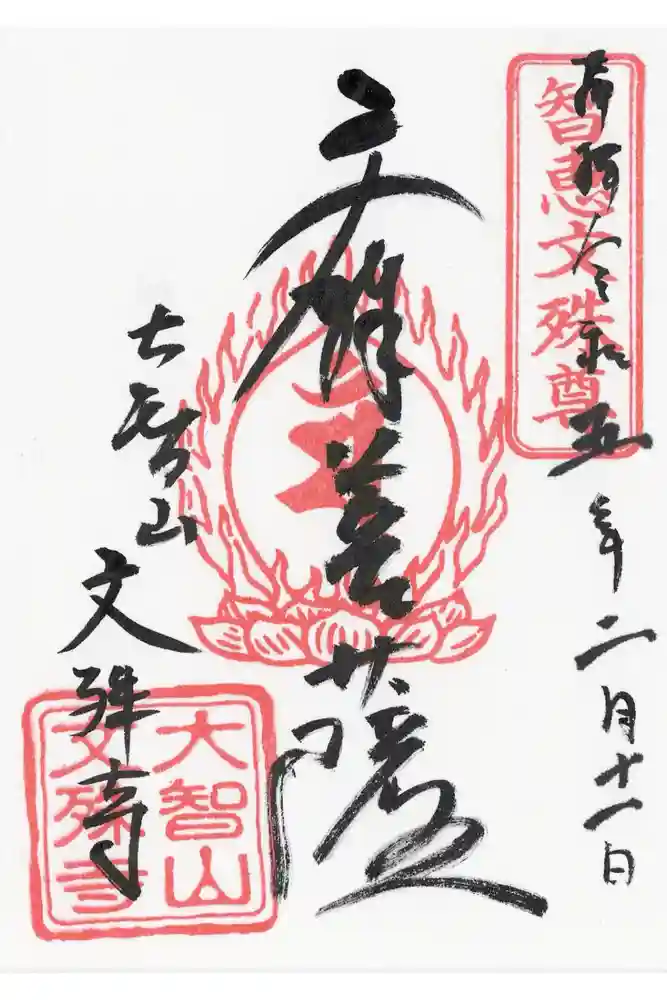 奉拝 令和五年二月十一日
智恵文殊尊
文殊菩薩
大智山
文殊寺
大智山
文殊寺